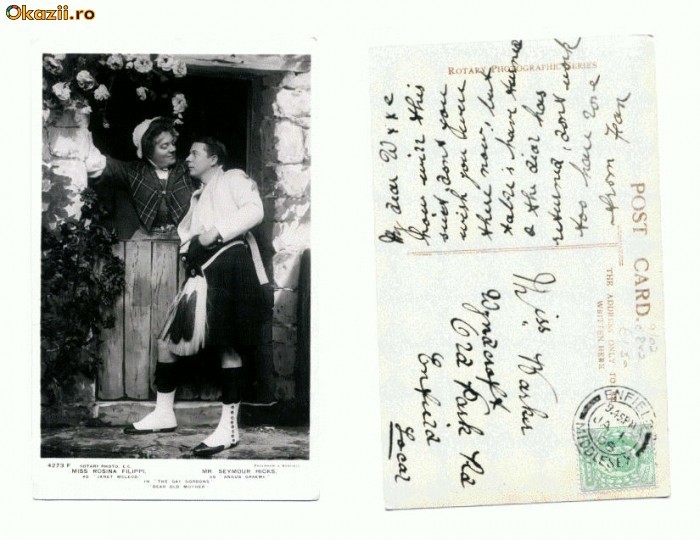 Okazii.ro
4273 F
ROTARY PHOTO, E.C.
MISS ROSINA FILIPPI,
MR SEYMOUR HICKS,
AS "JANET MCLEOD,"
AS "ANGUS GRAEME"
IN "THE GAY GORDONS"
"DEAR OLD MOTHER"
ROTARY PHOTOGRAPHIC SERIES
POST CARD.
THE ADDRESS ONLY TO BE
WRITTEN HERE
My dear W
how will this
suit, dont you
wish you were
there now, but
have turned
& the dear has
returned, dont work
too hard love
from Fran
Miss.
Park Rd
Enfield
Local
ENFIELD